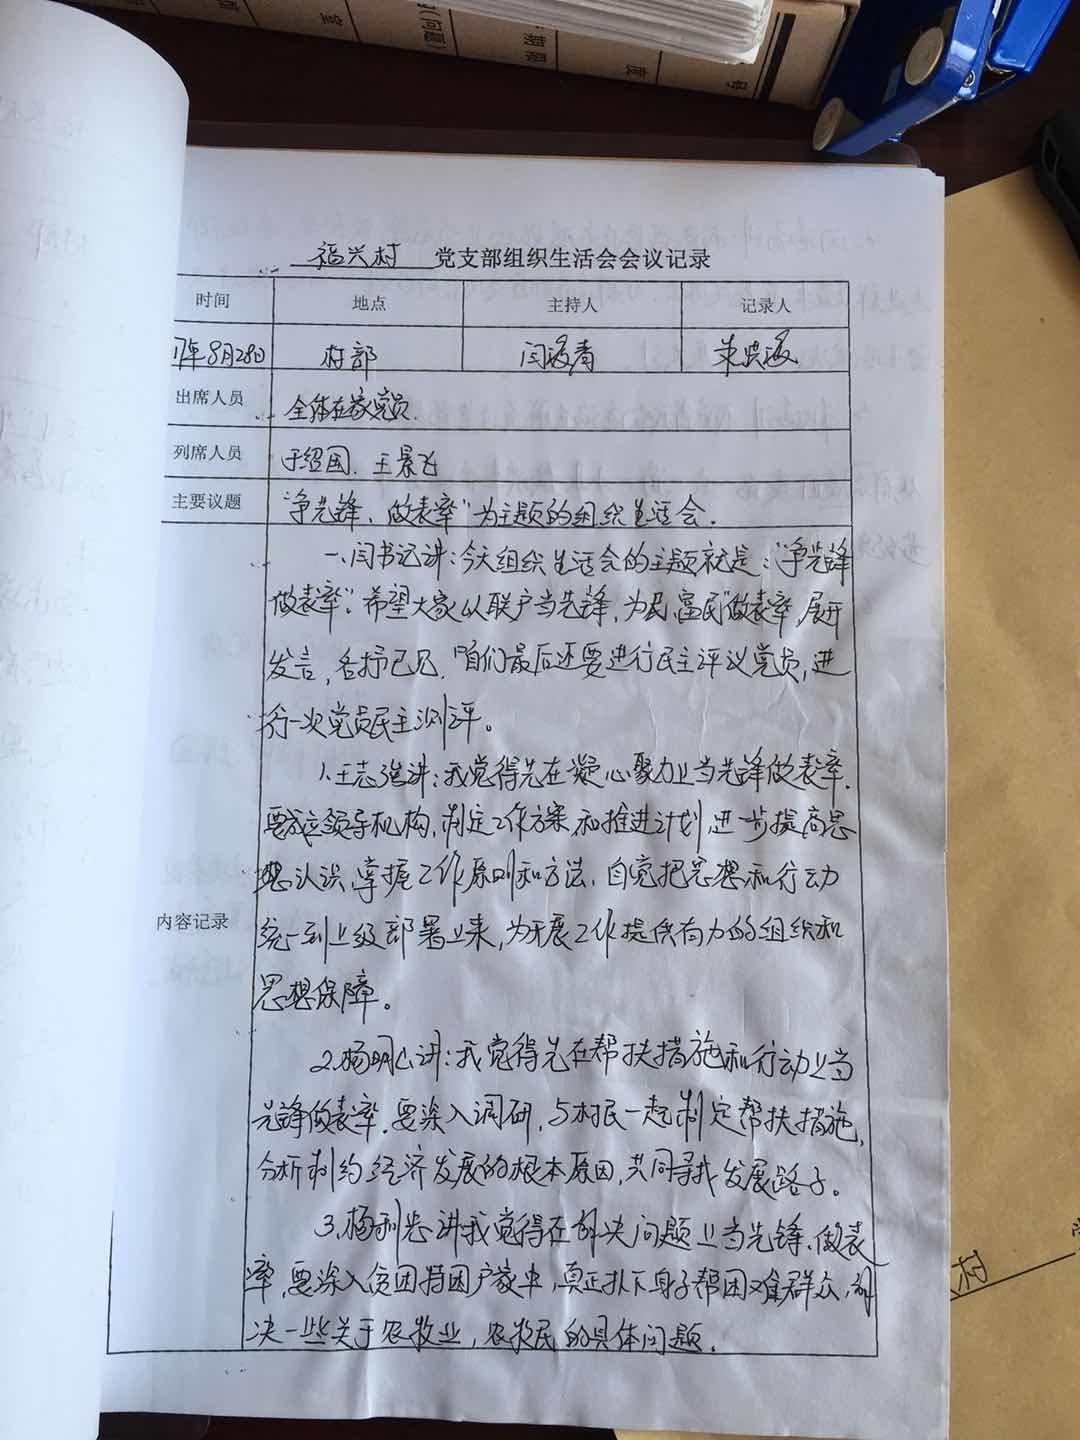 福兴村 党支部组织生活会会议记录
时间 地点 主持人 记录人
17年8月28日 村部 闫海青
出席人员 全体在家党员.
列席人员 于绍国、王景飞
主要议题 “争先锋、做表率”为主题的组织生活会.
内容记录
一、闫书记讲:今天组织生活会的主题就是:“争先锋
做表率”. 希望大家从联户当先锋,为民富民“做表率,展开
发言,各抒己见. 咱们最后还要进行民主评议党员,进
行一次党员民主测评。
1.王志强讲:我觉得先在凝心聚力上当先锋做表率.
要成立领导机构,制定工作方案和推进计划,进一步提高思
想认识,掌握工作原则和方法,自觉把思想和行动
统一到上级部署上来,为开展工作提供有力的组织和
思想保障。
2.杨明山讲:我觉得先在帮扶措施和行动上当
先锋做表率.要深入调研,与村民一起制定帮扶措施,
分析制约经济发展的根本原因,共同寻找发展路子。
3.杨利忠讲我觉得在解决问题上当先锋、做表
率,要深入贫困特困户家中,真正扑下身子帮困难群众,解
决一些关于农牧业,农牧民的具体问题.